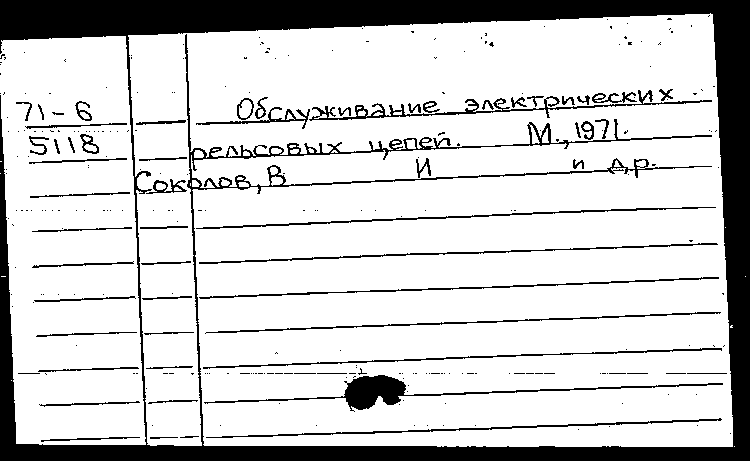 71-6 Обслуживание электрических
5118 рельсовых цепей. М., 1971.
Соколов, В И и др.